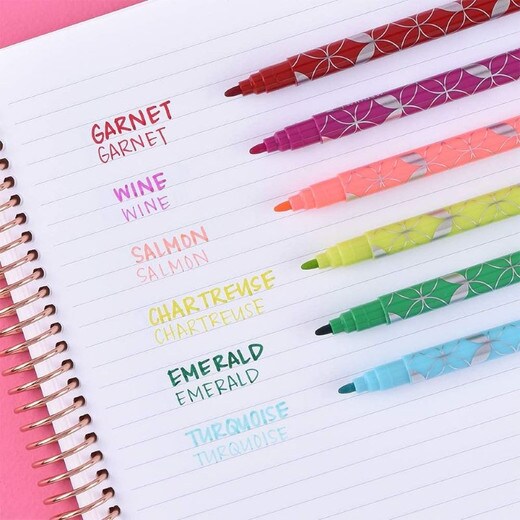 GARNET
GARNET
WINE
WINE
SALMON
SALMON
CHARTREUSE
CHARTREUSE
EMERALD
EMERALD
TURQUOISE
TURQUOISE